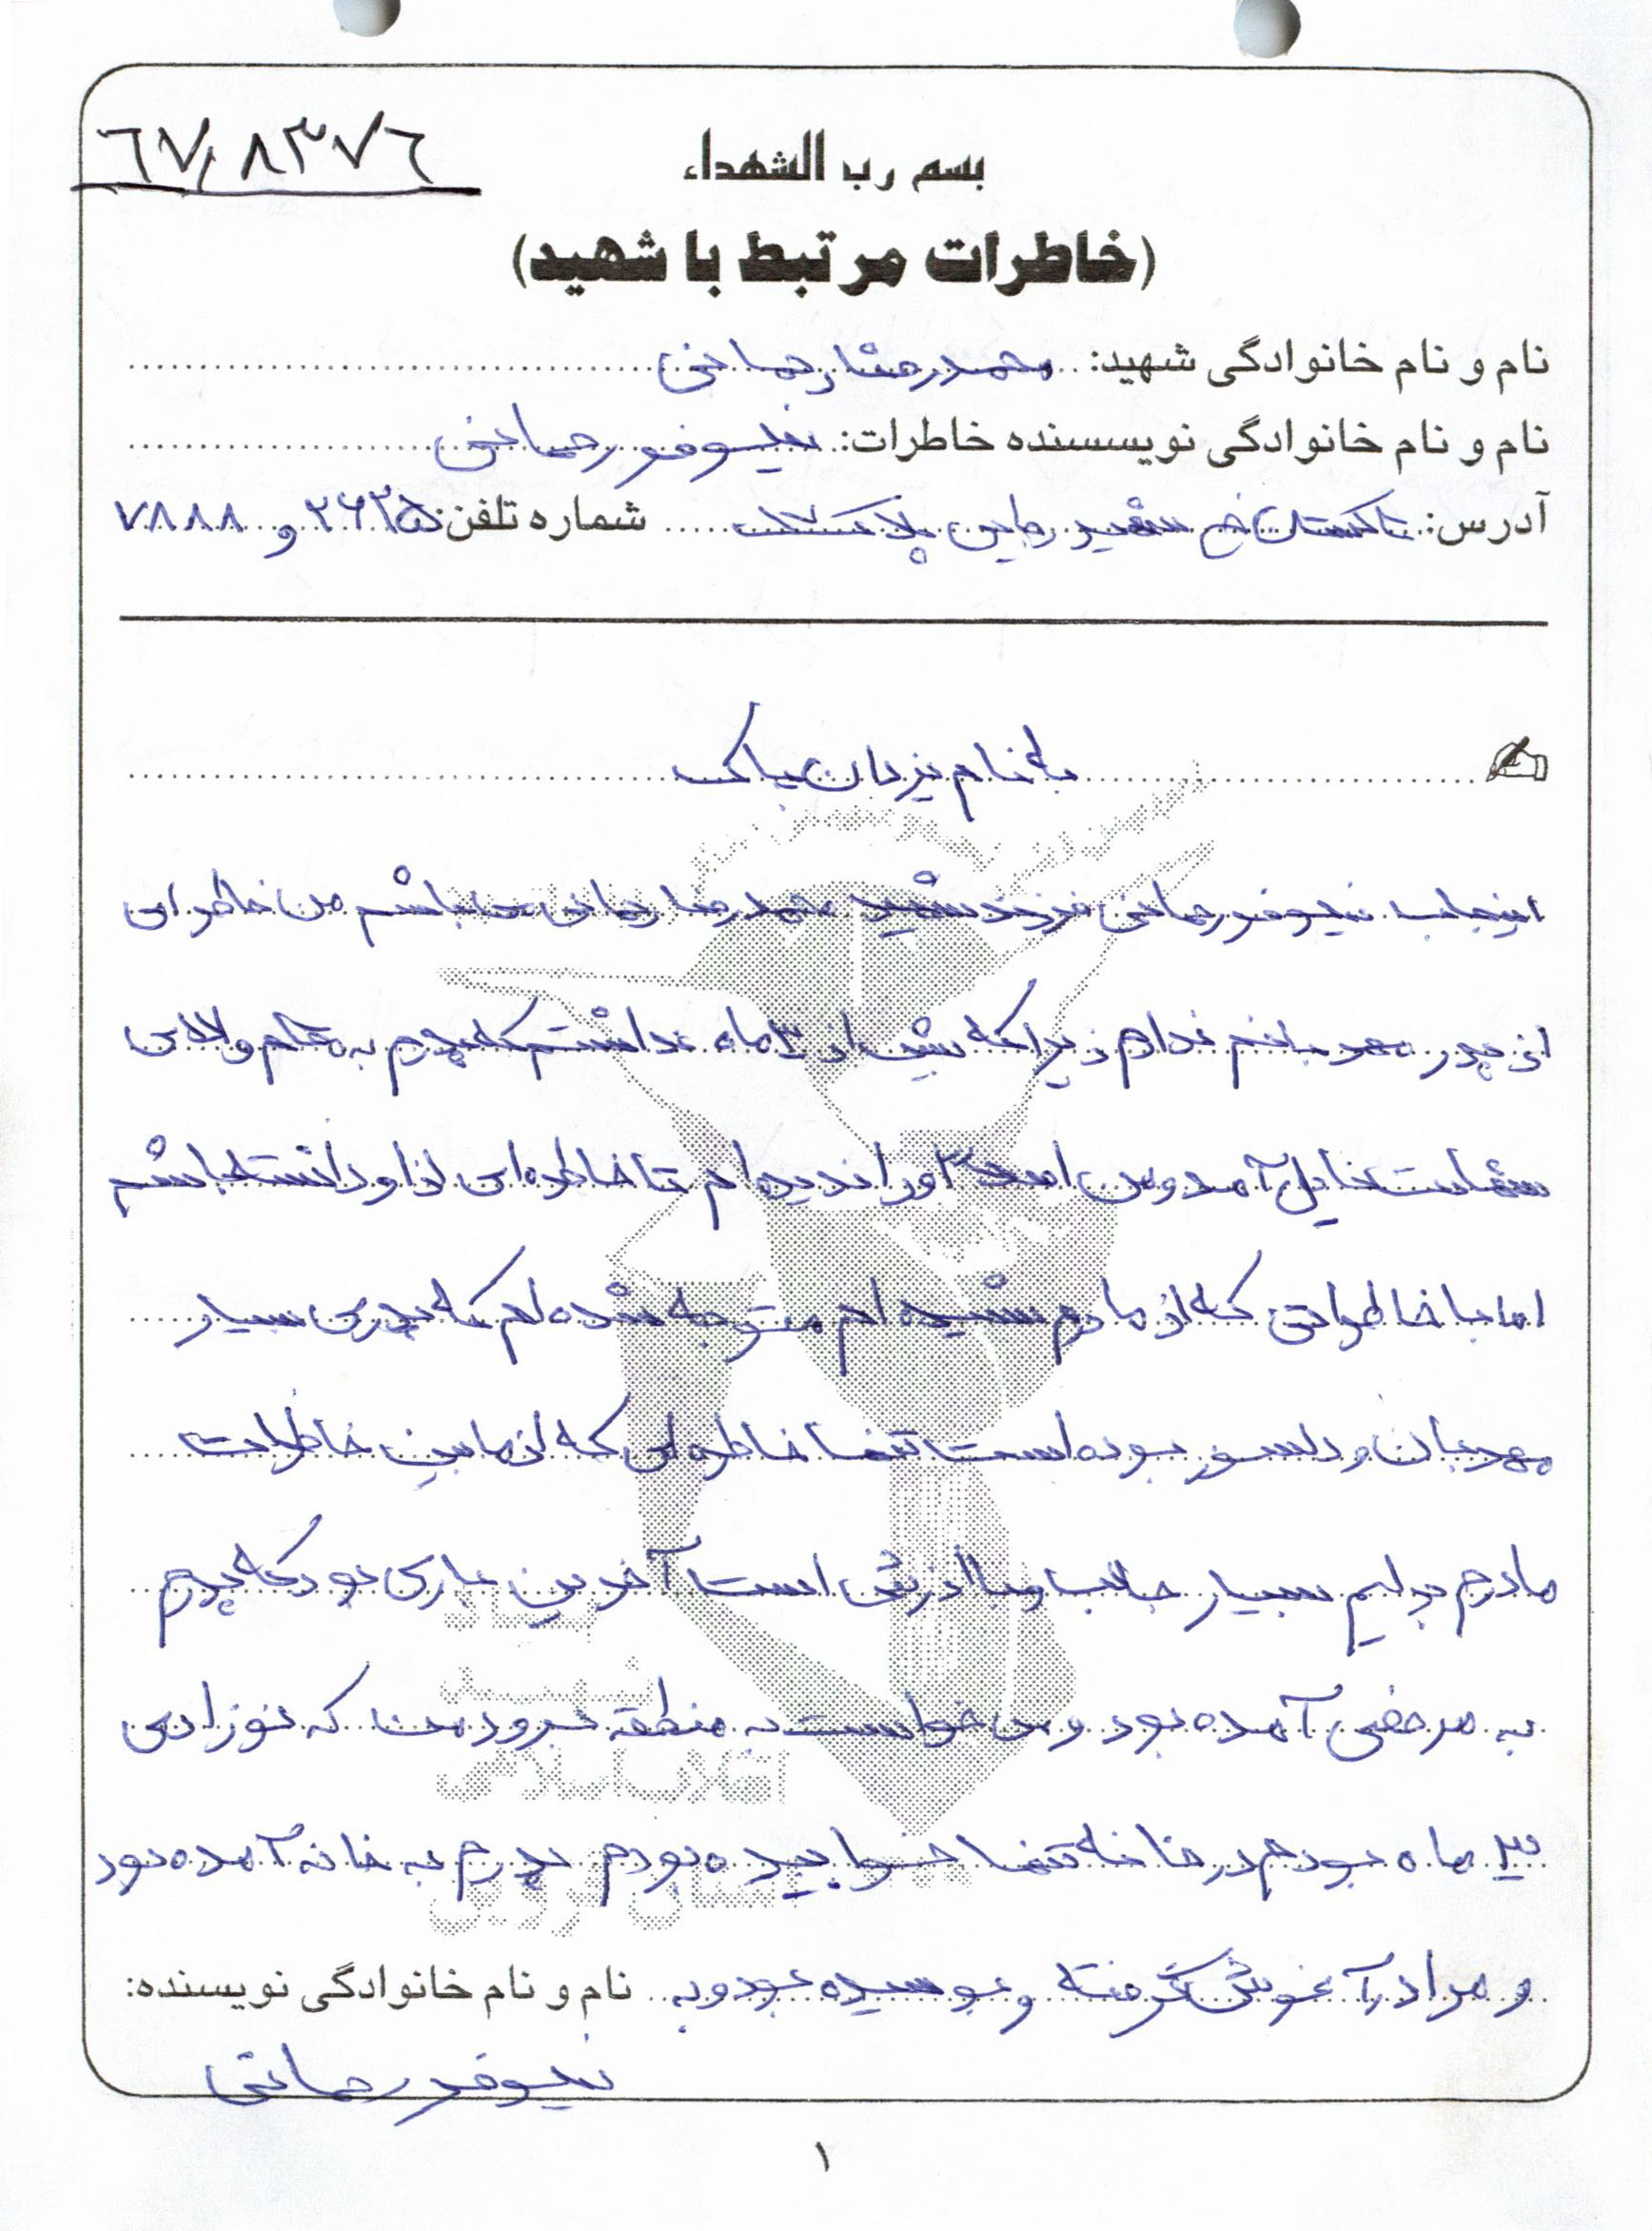 ٦٧/٨٣٧٦
بسم رب الشهداء
(خاطرات مرتبط با شهید)
نام و نام خانوادگی شهید: محمدرضا رحمانی
نام و نام خانوادگی نویسنده خاطرات: نیلوفر رحمانی
آدرس: تاکستان خ شهید پلاک شماره تلفن: و ۷۸۸۸
به نام یزدان پاک
اینجانب نیلوفر رحمانی فرزند شهید محمدرضا رحمانی می باشم من خاطره ای
از پدر مهربانم ندارم زیرا که بیش از ۳ ماه نداشتم که پدرم به مقام والای
شهادت نایل آمد و من او را ندیده ام تا خاطره ای از او داشته باشم
اما با خاطراتی که از مادرم شنیده ام متوجه شده ام که پدری بسیار
مهربان و دلسوز بوده است تنها خاطره ای که از مابین خاطرات
مادرم برایم بسیار جالب و با ارزش است آخرین باری بود که پدرم
به مرخصی آمده بود و می خواست به منطقه برود من که نوزادی
۳ ماه بودم در خانه تنها خوابیده بودم پدرم به خانه آمده بود
و مرا در آغوش گرفته و بوسیده بود و به نام و نام خانوادگی نویسنده:
نیلوفر رحمانی
بنیاد
شهید
انقلاب اسلامی
استان قزوین
۱